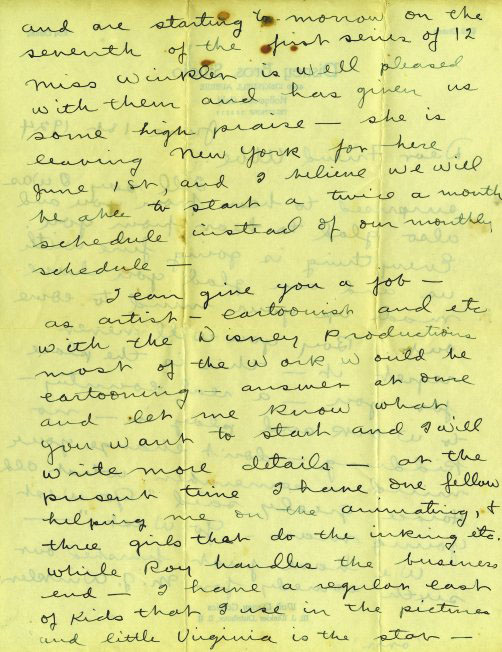 and are starting to-morrow on the
seventh of the first series of 12
Miss Winkler is well pleased
with them and has given us
some high praise — she is
leaving New York for here
June 1st, and I believe we will
be able to start a twice a month
schedule instead of our monthly
schedule —
I can give you a job —
as artist - cartoonist and etc
with the Disney Productions
most of the work would be
cartooning — answer at once
and let me know what
you want to start and I will
write more details — at the
present time I have one fellow
helping me on the animating, &
three girls that do the inking etc.
while Roy handles the business
end — I have a regular cast
of Kids that I use in the pictures
and little Virginia is the star —